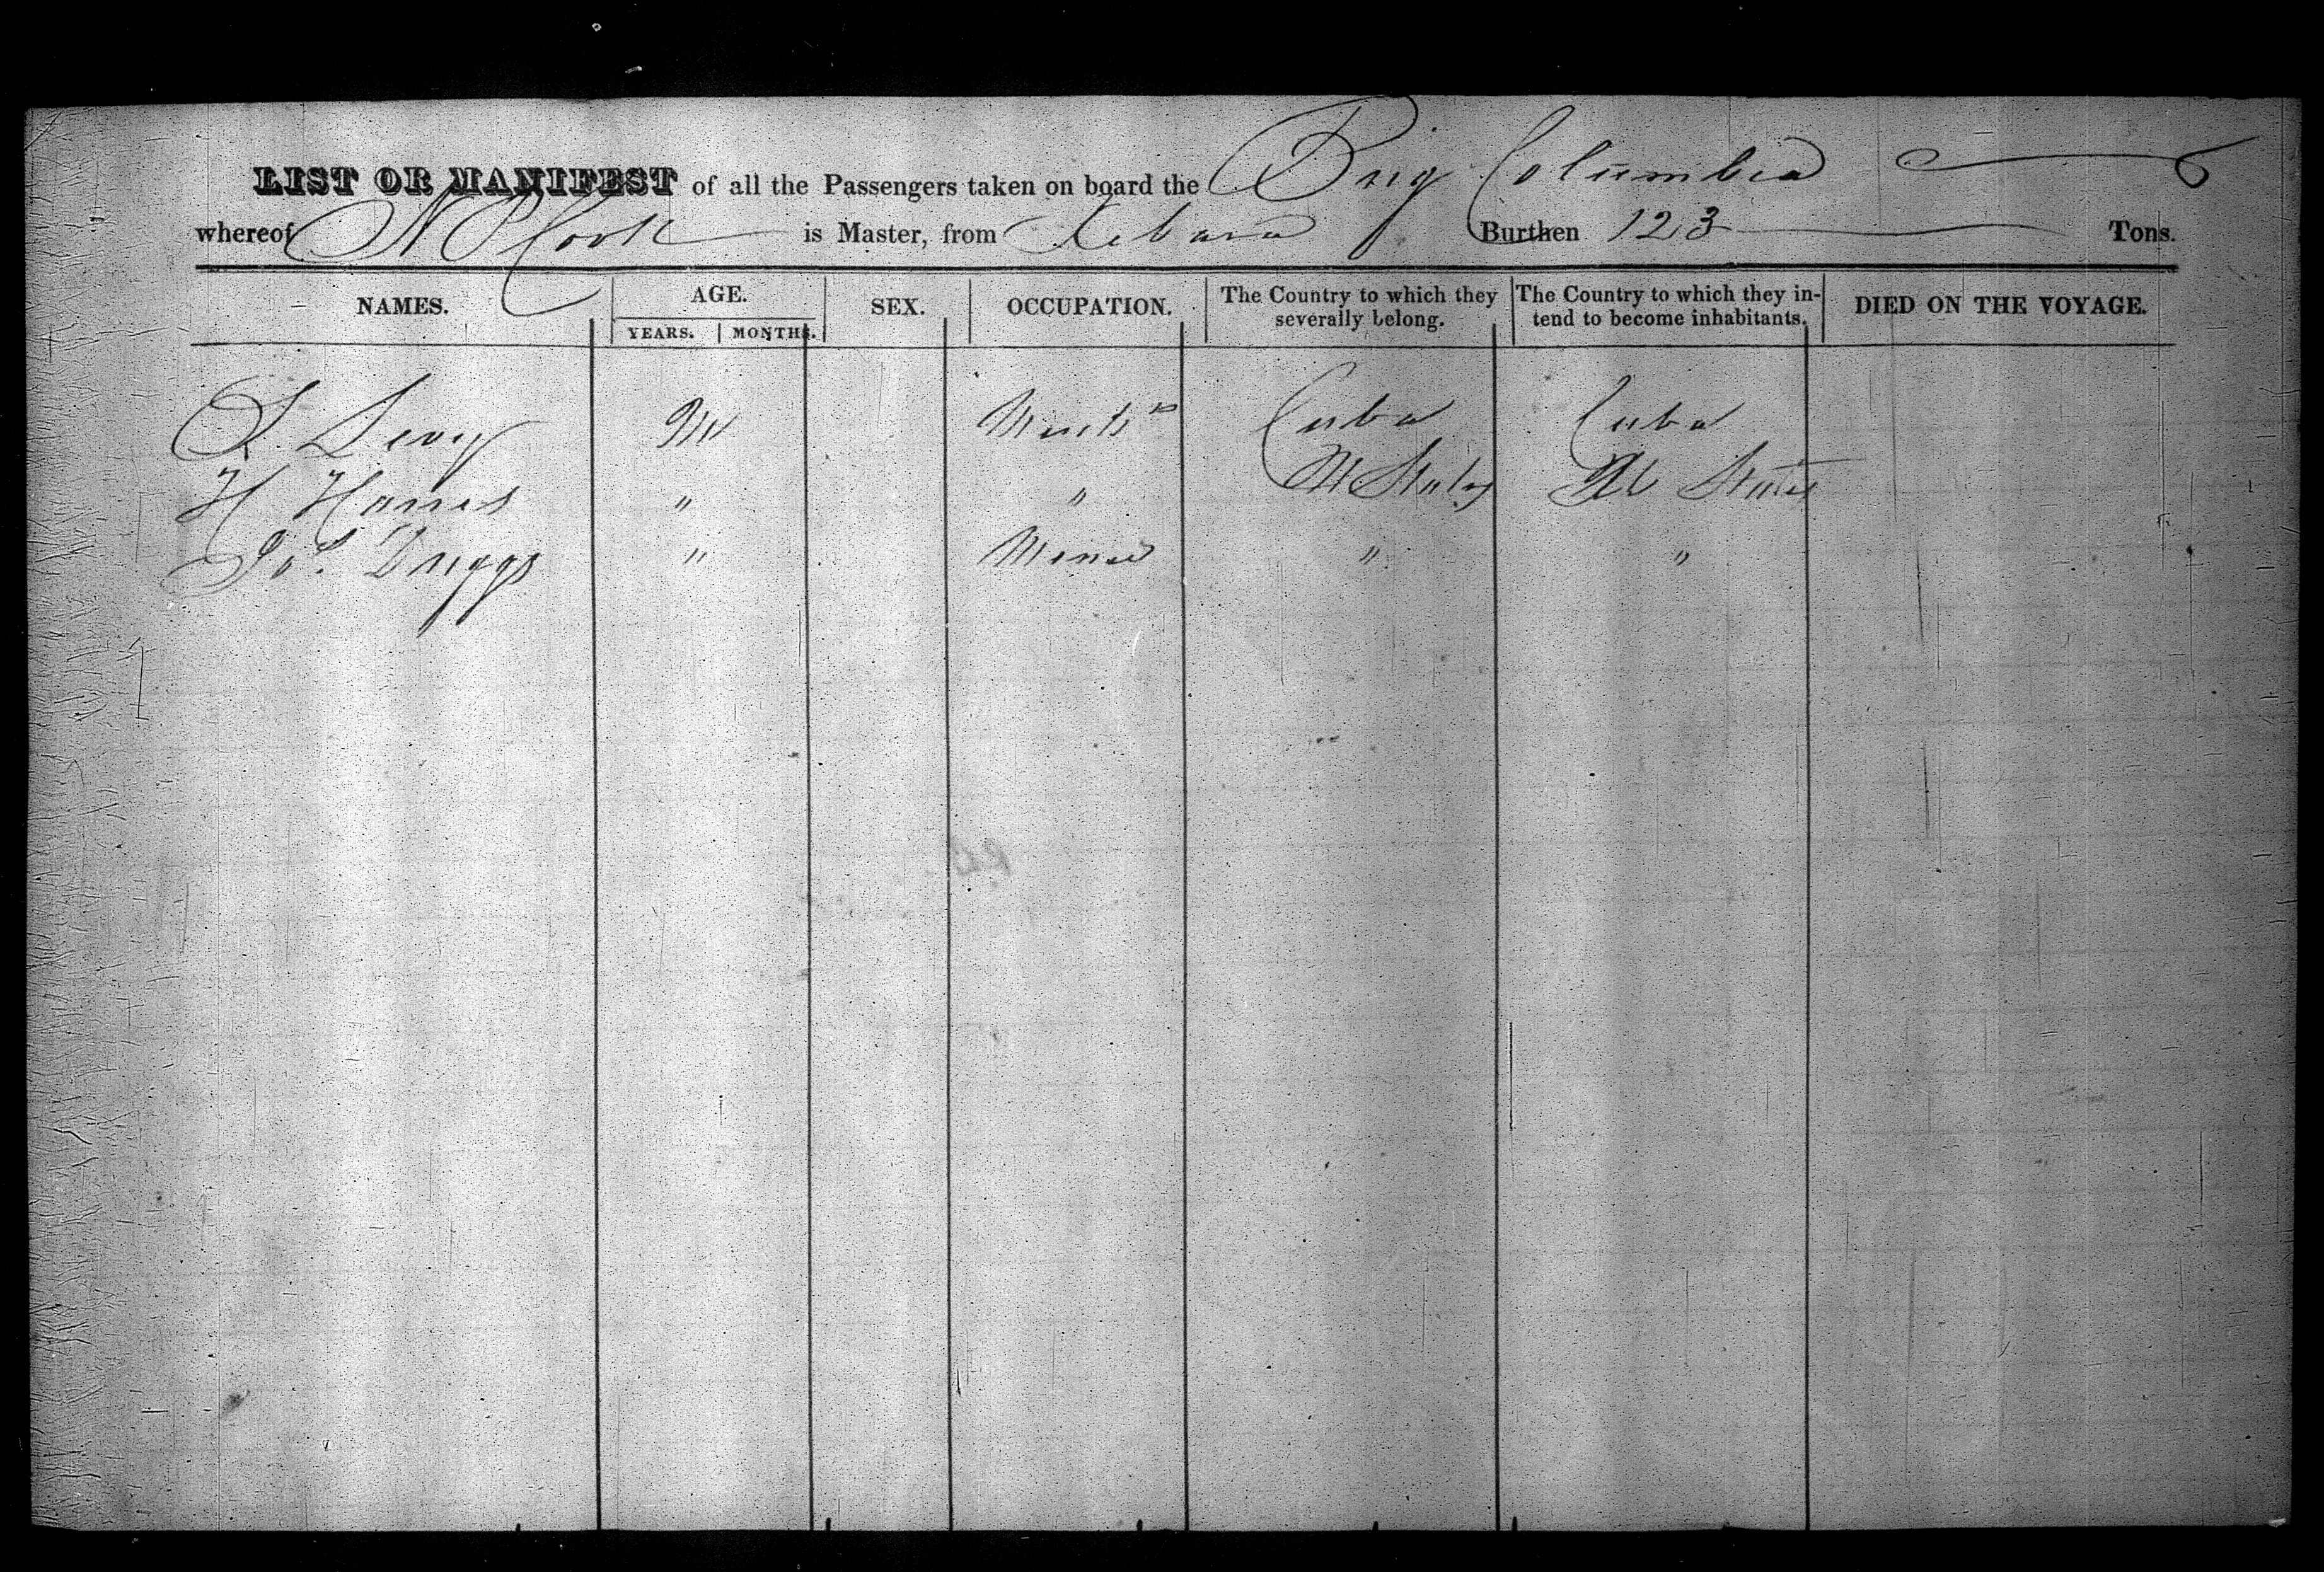 LIST OR MANIFEST of all the Passengers taken on board the Brig Columbia
whereof N P Cook is Master, from Xebara Burthen 123 Tons.
NAMES. AGE. SEX. OCCUPATION. The Country to which they severally belong. The Country to which they intend to become inhabitants. DIED ON THE VOYAGE.
YEARS. MONTHS.
S. Levy Cuba Cuba
H Harris " " U States U States
Driggs " " "